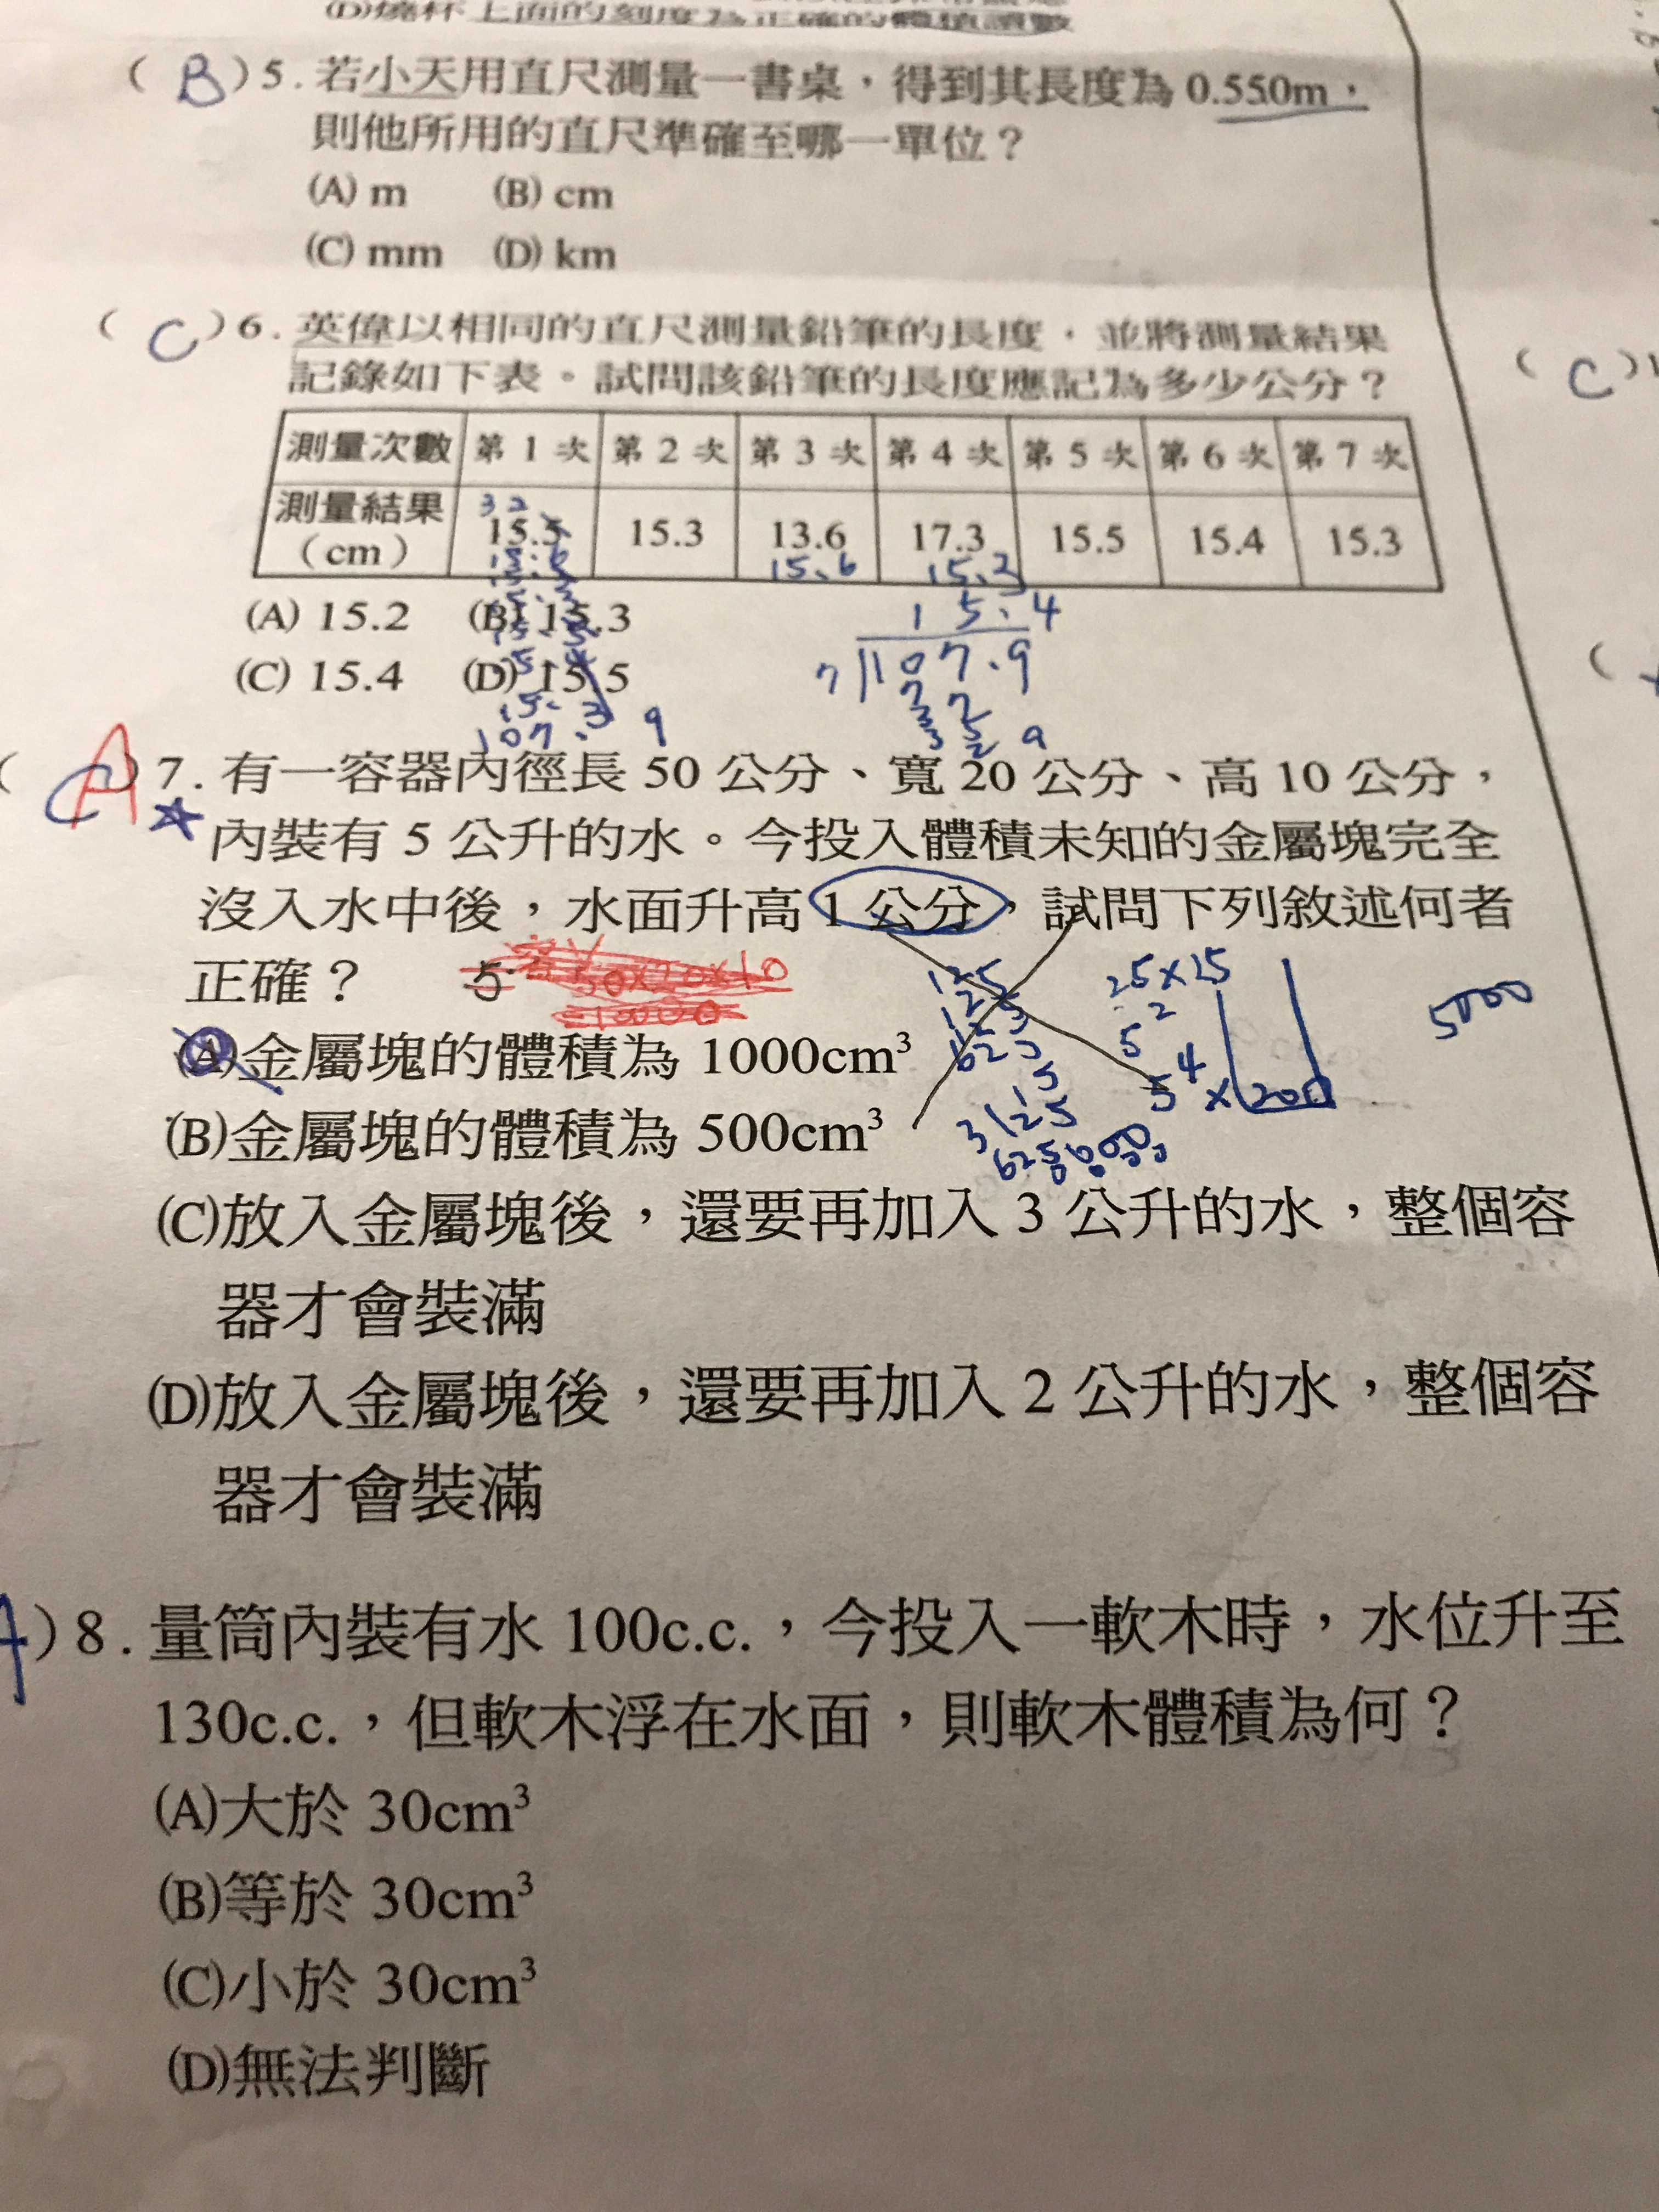 (D)燒杯上面的刻度為正確的體積讀數
( B ) 5 . 若小天用直尺測量一書桌，得到其長度為 0.550m，
則他所用的直尺準確至哪一單位？
(A) m (B) cm
(C) mm (D) km
( C ) 6 . 英偉以相同的直尺測量鉛筆的長度，並將測量結果
記錄如下表。試問該鉛筆的長度應記為多少公分？
測量次數 第 1 次 第 2 次 第 3 次 第 4 次 第 5 次 第 6 次 第 7 次
3 2
測量結果（cm） 15.5 15.3 13.6 17.3 15.5 15.4 15.3
15.6 15.3
(A) 15.2 (B) 15.3
(C) 15.4 (D) 15.5
15.4
7 107.9
7
37
35
29
107. 9
( C A ) 7 . 有一容器內徑長 50 公分、寬 20 公分、高 10 公分，
內裝有 5 公升的水。今投入體積未知的金屬塊完全
沒入水中後，水面升高 1 公分，試問下列敘述何者
正確？
5 50×20×10
=10000
125
125
625
5
3125
25×25
5²
5⁴×200
5000
(A)金屬塊的體積為 1000cm³
(B)金屬塊的體積為 500cm³
(C)放入金屬塊後，還要再加入 3 公升的水，整個容
器才會裝滿
(D)放入金屬塊後，還要再加入 2 公升的水，整個容
器才會裝滿
A ) 8 . 量筒內裝有水 100c.c.，今投入一軟木時，水位升至
130c.c.，但軟木浮在水面，則軟木體積為何？
(A)大於 30cm³
(B)等於 30cm³
(C)小於 30cm³
(D)無法判斷
( C ) 1
(